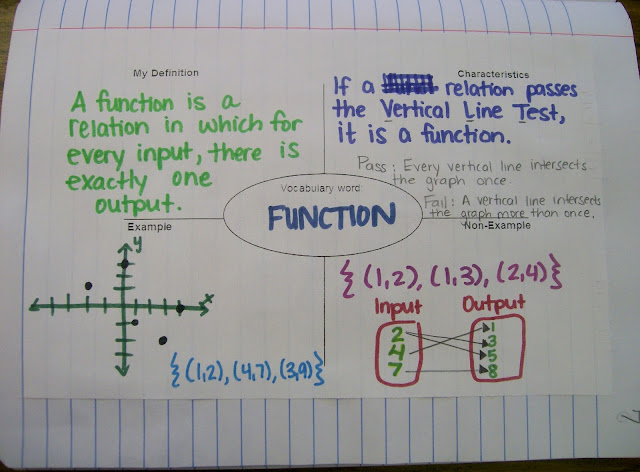 My Definition
A function is a
relation in which for
every input, there is
exactly one
output.
Characteristics
If a relation passes
the Vertical Line Test,
it is a function.
Pass: Every vertical line intersects
the graph once
Fail: A vertical line intersects
the graph more than once.
Vocabulary word:
FUNCTION
Example
y
x
{(1,2), (4,7), (3,9)}
Non-Example
{(1,2), (1,3), (2,4)}
Input Output
2 1
4 3
7 5
8